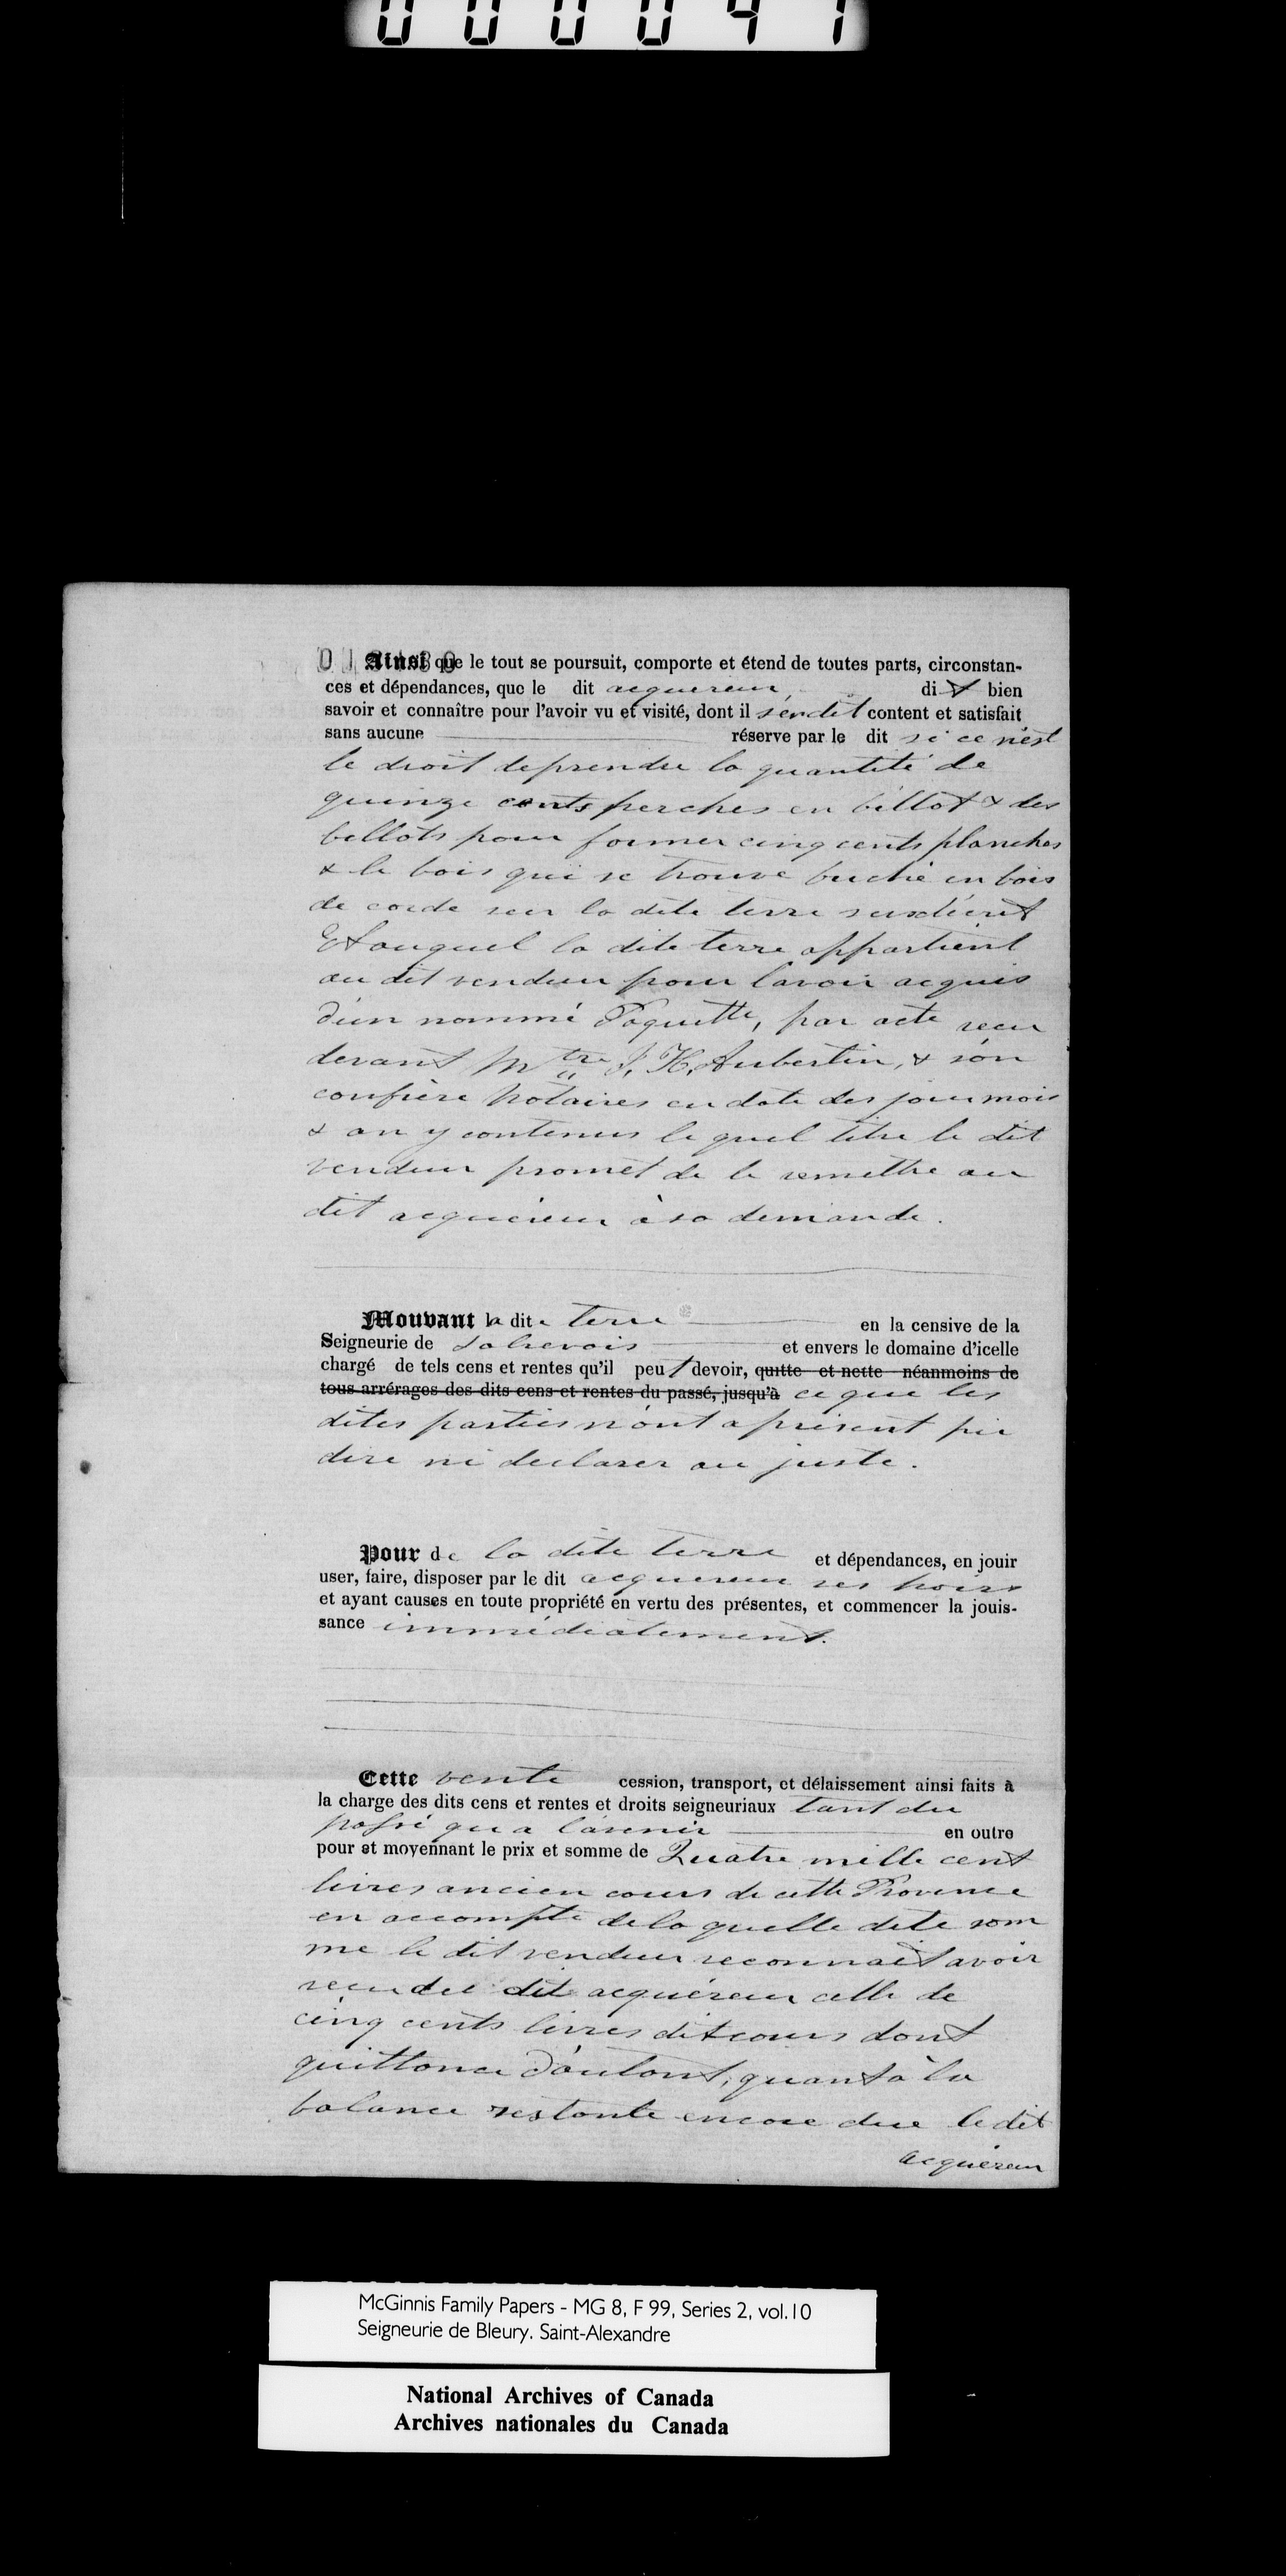 000041
Ainsi que le tout se poursuit, comporte et étend de toutes parts, circonstan-
ces et dépendances, que le dit acquereur, dit bien
savoir et connaître pour l'avoir vu et visité, dont il s'en dit content et satisfait
sans aucune réserve par le dit si ce n'est
le droit de prendre la quantité de
quinze cents perches en billot & des
billots pour former cinq cents planches
& le bois qui se trouve buché en bois
de corde sur la dite terre susdécrit
Et auquel la dite terre appartient
au dit vendeur pour lavoir acquis
d'un nommé Paquette, par acte recu
devant Mtre J. H. Aubertin, & son
confrère Notaires en date des jour mois
& an y contenus le quel titre le dit
vendeur promet de le remettre au
dit acquéreur à sa demande.
Mouvant la dite terre en la censive de la
Seigneurie de Sabrevois et envers le domaine d'icelle
chargé de tels cens et rentes qu'il peut devoir, quitte et nette néanmoins de
tous arrérages des dits cens et rentes du passé, jusqu'à ce que les
dites parties n'ont a présent pu
dire ni declarer au juste.
Pour de la dite terre et dépendances, en jouir
user, faire, disposer par le dit acquereur ses hoirs
et ayant causes en toute propriété en vertu des présentes, et commencer la jouis-
sance immédiatement.
Cette vente cession, transport, et délaissement ainsi faits à
la charge des dits cens et rentes et droits seigneuriaux tant du
passé qu a l'avenir en outre
pour et moyennant le prix et somme de Quatre mille cent
livres ancien cours de cette Province
en accompte de la quelle dite som
me le dit vendeur reconnait avoir
recu du dit acquéreur celle de
cinq cents livres dit cours dont
quittance d'autant, quant à la
balance restante encore due le dit
acquéreur
McGinnis Family Papers - MG 8, F 99, Series 2, vol.10
Seigneurie de Bleury. Saint-Alexandre
National Archives of Canada
Archives nationales du Canada